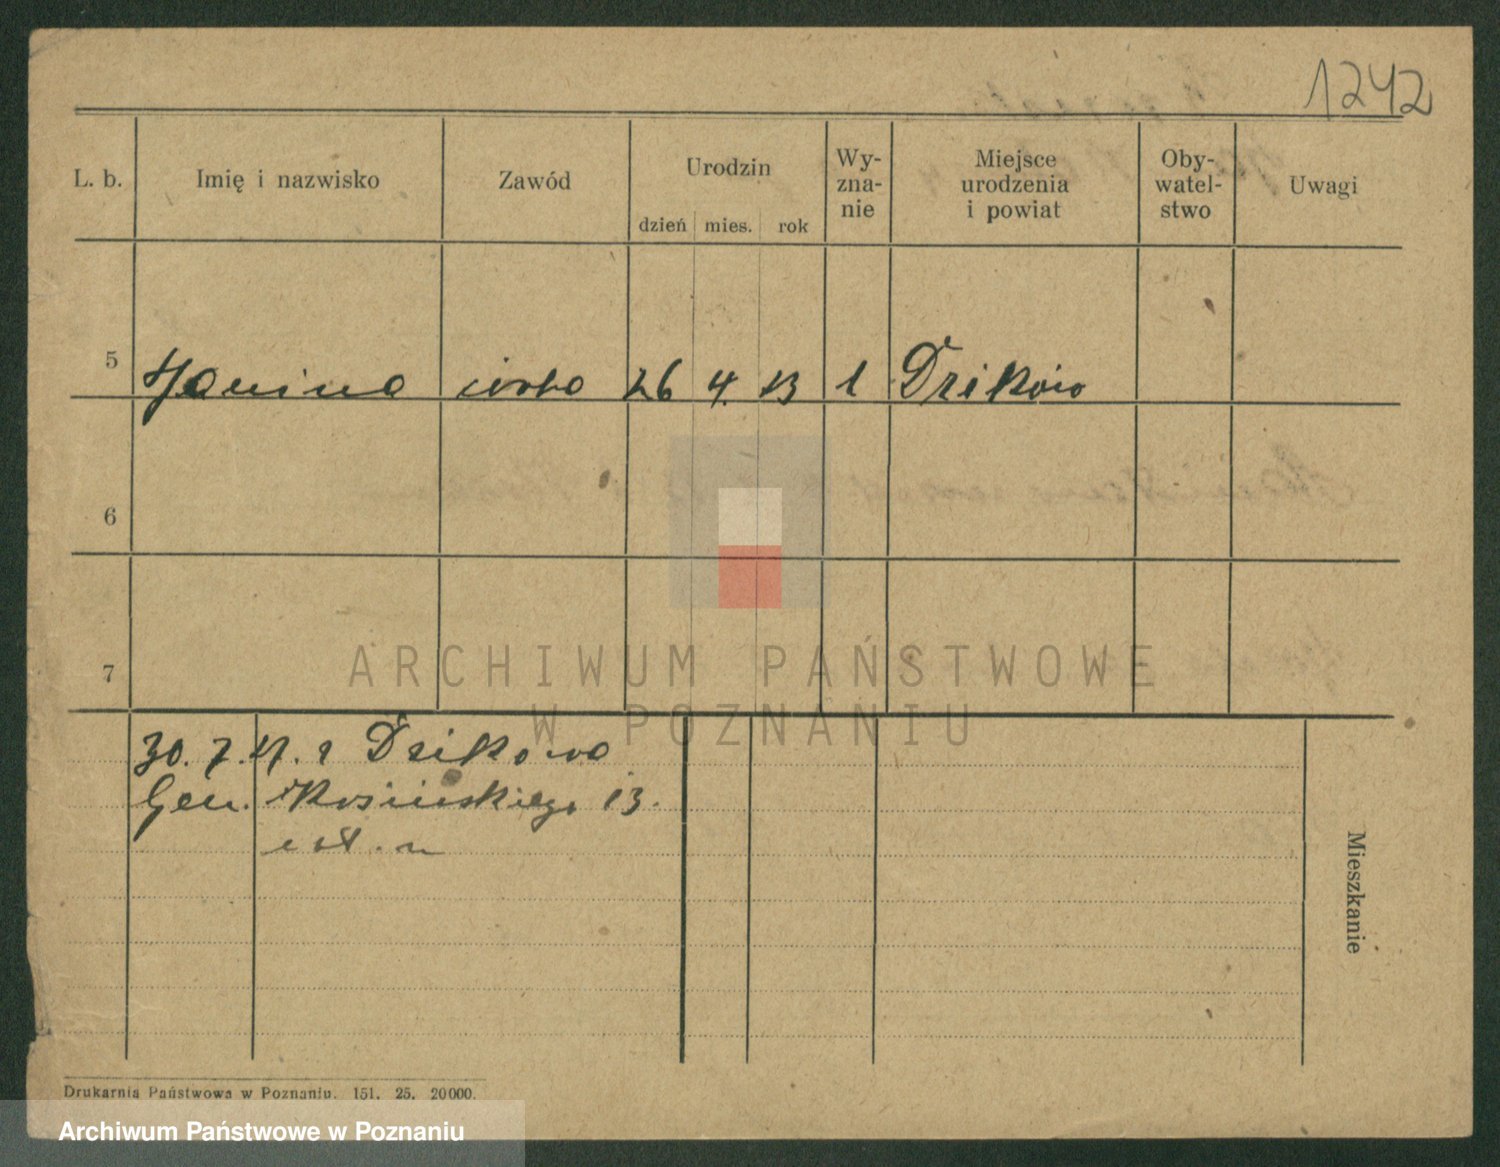 1242
L. b. Imię i nazwisko Zawód Urodzin Wy-zna-nie Miejsce urodzenia i powiat Oby-watel-stwo Uwagi
dzień mies. rok
5 Janina córka 26 4. 13 1 Dzików
6
7
30. 7. z Dzikowa
Gen. Kosińskiego 13.
Mieszkanie
ARCHIWUM PAŃSTWOWE
W POZNANIU
Drukarnia Państwowa w Poznaniu. 151. 25. 20000.
Archiwum Państwowe w Poznaniu